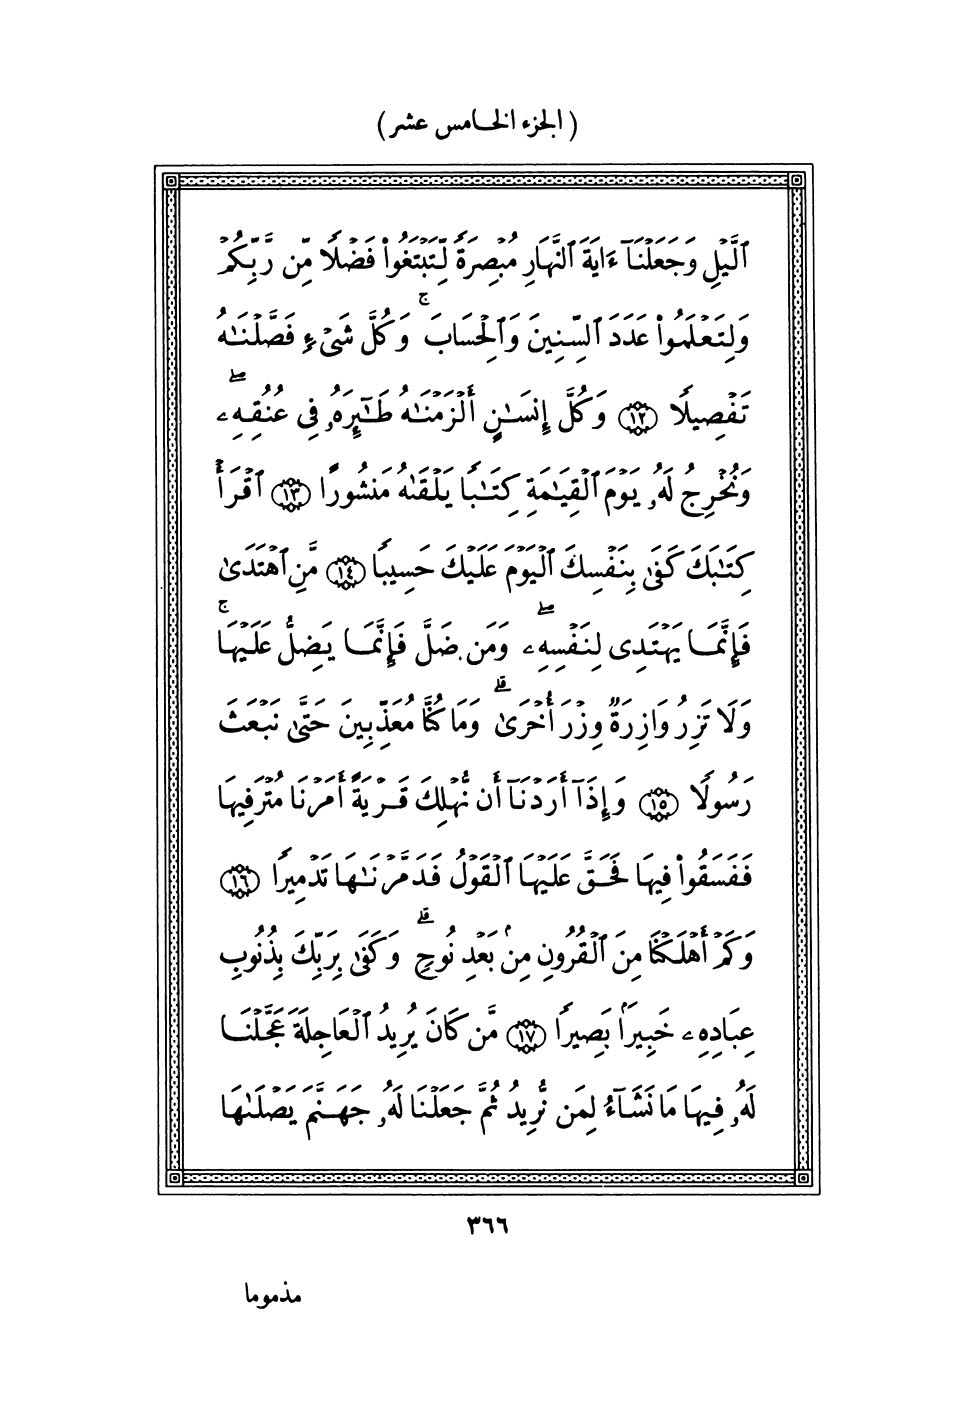 ( الجزء الخامس عشر )
ٱلَّيْلِ وَجَعَلْنَآ ءَايَةَ ٱلنَّهَارِ مُبْصِرَةً لِّتَبْتَغُوا۟ فَضْلًا مِّن رَّبِّكُمْ
وَلِتَعْلَمُوا۟ عَدَدَ ٱلسِّنِينَ وَٱلْحِسَابَ ۚ وَكُلَّ شَىْءٍ فَصَّلْنَـٰهُ
تَفْصِيلًا ﴿١٢﴾ وَكُلَّ إِنسَـٰنٍ أَلْزَمْنَـٰهُ طَـٰٓئِرَهُۥ فِى عُنُقِهِۦ ۖ
وَنُخْرِجُ لَهُۥ يَوْمَ ٱلْقِيَـٰمَةِ كِتَـٰبًا يَلْقَىٰهُ مَنشُورًا ﴿١٣﴾ ٱقْرَأْ
كِتَـٰبَكَ كَفَىٰ بِنَفْسِكَ ٱلْيَوْمَ عَلَيْكَ حَسِيبًا ﴿١٤﴾ مَّنِ ٱهْتَدَىٰ
فَإِنَّمَا يَهْتَدِى لِنَفْسِهِۦ ۖ وَمَن ضَلَّ فَإِنَّمَا يَضِلُّ عَلَيْهَا ۚ
وَلَا تَزِرُ وَازِرَةٌ وِزْرَ أُخْرَىٰ ۗ وَمَا كُنَّا مُعَذِّبِينَ حَتَّىٰ نَبْعَثَ
رَسُولًا ﴿١٥﴾ وَإِذَآ أَرَدْنَآ أَن نُّهْلِكَ قَرْيَةً أَمَرْنَا مُتْرَفِيهَا
فَفَسَقُوا۟ فِيهَا فَحَقَّ عَلَيْهَا ٱلْقَوْلُ فَدَمَّرْنَـٰهَا تَدْمِيرًا ﴿١٦﴾
وَكَمْ أَهْلَكْنَا مِنَ ٱلْقُرُونِ مِنۢ بَعْدِ نُوحٍ ۗ وَكَفَىٰ بِرَبِّكَ بِذُنُوبِ
عِبَادِهِۦ خَبِيرًۢا بَصِيرًا ﴿١٧﴾ مَّن كَانَ يُرِيدُ ٱلْعَاجِلَةَ عَجَّلْنَا
لَهُۥ فِيهَا مَا نَشَآءُ لِمَن نُّرِيدُ ثُمَّ جَعَلْنَا لَهُۥ جَهَنَّمَ يَصْلَىٰهَا
٣٦٦
مذموما